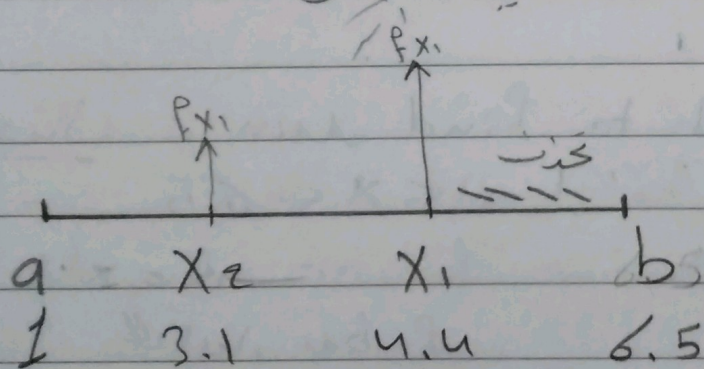 fx₁
fx₁
حذف
a x₂ x₁ b
1 3.1 4.4 6.5